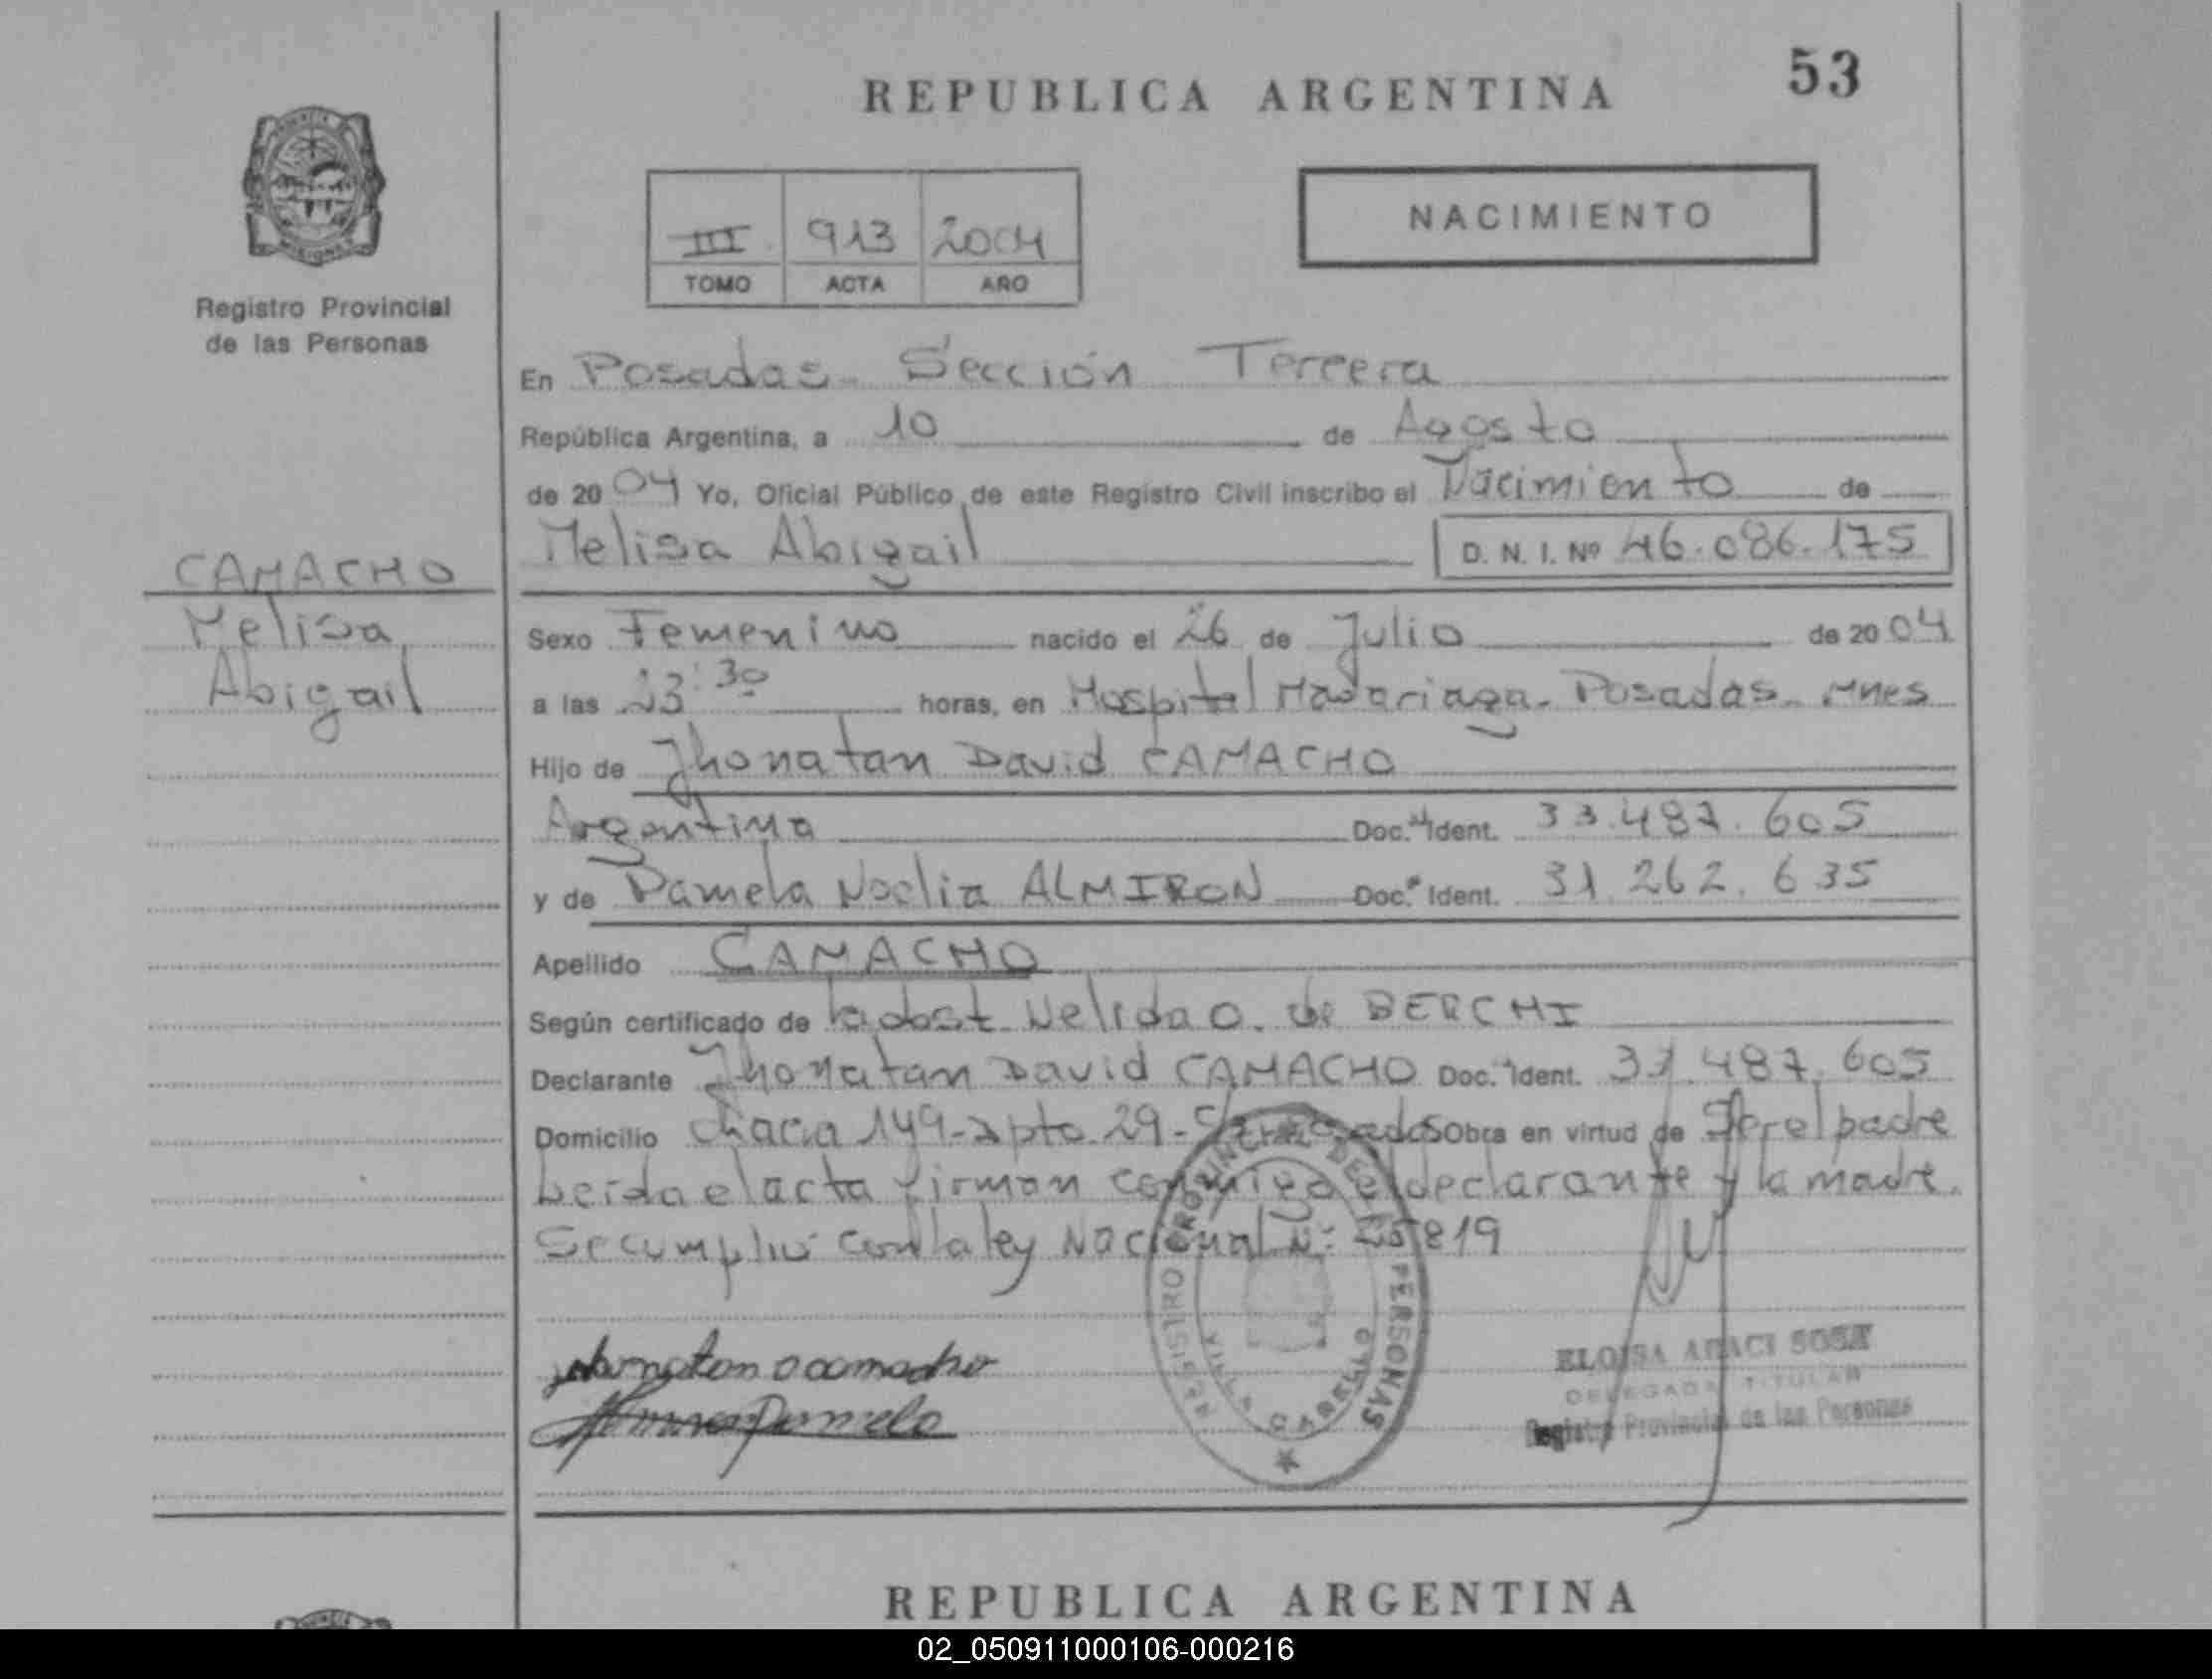 53
REPUBLICA ARGENTINA
NACIMIENTO
III 913 2004
TOMO ACTA AÑO
Registro Provincial
de las Personas
En Posadas - Sección Tercera
República Argentina, a 10 de Agosto
de 2004 Yo, Oficial Público de este Registro Civil inscribo el Nacimiento de
Melisa Abigail D. N. I. Nº 46.086.175
CAMACHO
Melisa
Abigail
Sexo Femenino nacido el 26 de Julio de 2004
a las 23:30 horas, en Hospital Madariaga - Posadas - Mnes
Hijo de Jhonatan David CAMACHO
Argentina Doc. Ident. 33.487.605
y de Pamela Noelia ALMIRON Doc. Ident. 31.262.635
Apellido CAMACHO
Según certificado de la obst. Nelida O. de BERCHI
Declarante Jhonatan David CAMACHO Doc. Ident. 33.487.605
Domicilio Chacra 149 - dpto 29 - Obra en virtud de Ser el padre
Leida el acta firman conmigo el declarante y la madre.
Se cumplió con la ley Nacional Nº 25819
REGISTRO PROVINCIAL DE LAS PERSONAS
VILLA CABELLO
ELOISA SOSA
DELEGADA TITULAR
Registro Provincial de las Personas
REPUBLICA ARGENTINA
02_050911000106-000216